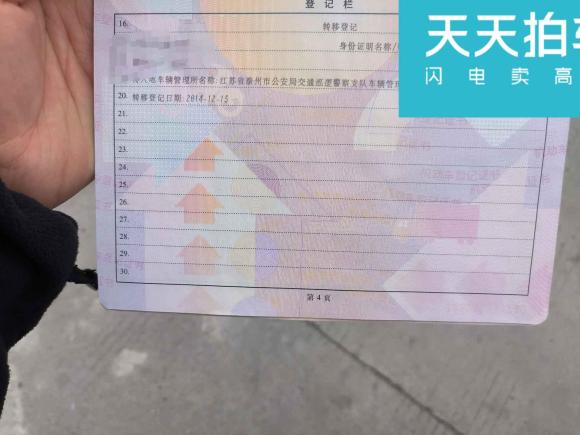 登记栏
天天拍车
闪电卖高
16.
转移登记
身份证明名称/
转入地车辆管理所名称:江苏省泰州市公安局交通巡逻警察支队车辆管理
20. 转移登记日期:2018-12-15
21.
22.
23.
24.
25.
26.
27.
28.
29.
30.
机动车登记证书
第 4 页